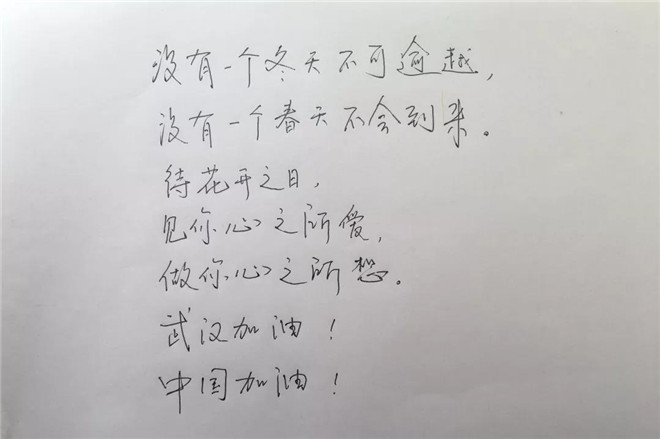 没有一个冬天不可逾越,
没有一个春天不会到来。
待花开之日,
见你心之所爱,
做你心之所想。
武汉加油!
中国加油!